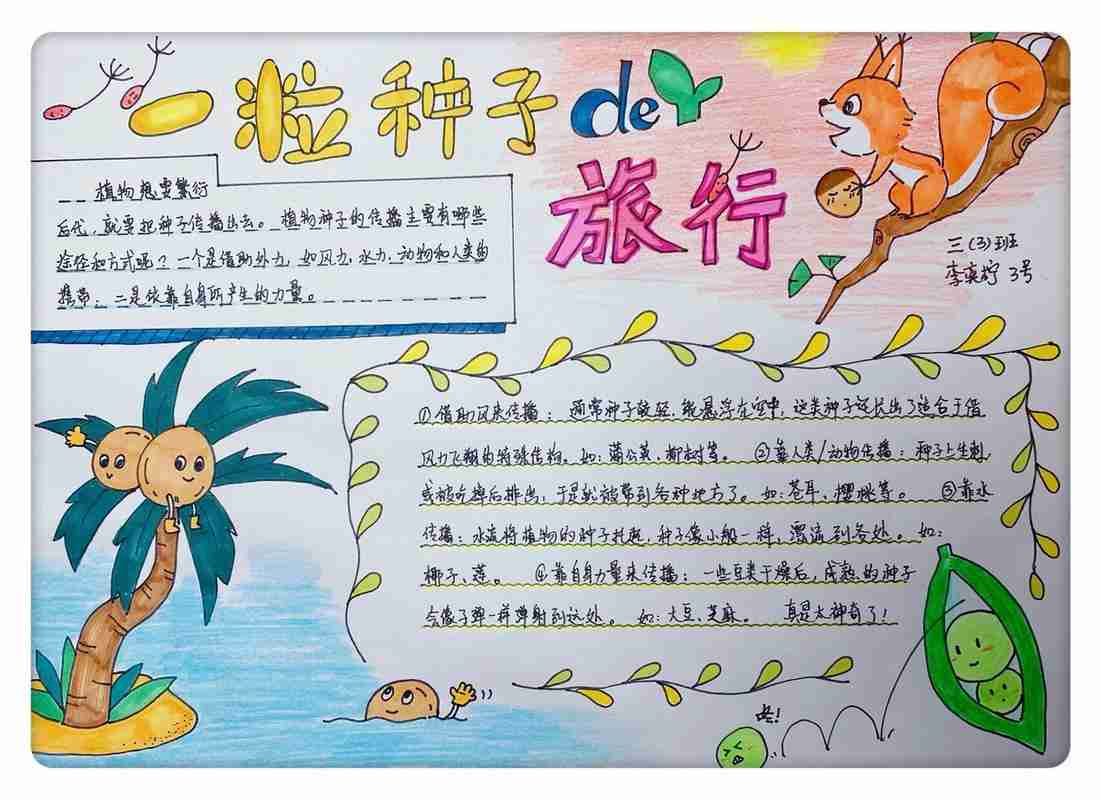 一粒种子de
旅行
三(3)班
李奕柠 3号
植物想要繁衍
后代,就要把种子传播出去。植物种子的传播主要有哪些
途径和方式呢?一个是借助外力,如风力,水力,动物和人类的
携带。二是依靠自身所产生的力量。
①借助风来传播:通常种子较轻,能悬浮在空中,这类种子还长出了适合于借
风力飞翔的特殊结构。如:蒲公英、柳树等。 ②靠人类/动物传播:种子上生刺,
或被吃掉后排出,于是就被带到各种地方了。如:苍耳、樱桃等。 ③靠水
传播:水流将植物的种子托起,种子像小船一样,漂流到各处。如:
椰子、莲。 ④靠自身力量来传播:一些豆类干燥后,成熟的种子
会像子弹一样弹射到远处。如:大豆、芝麻。 真是太神奇了!
咚!